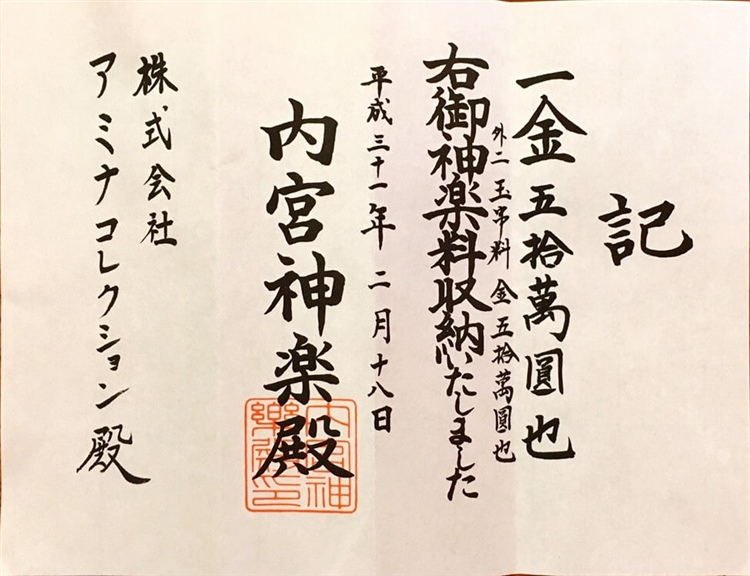 記
一金五拾萬圓也
外ニ玉串料金五拾萬圓也
右御神楽料収納いたしました
平成三十一年二月十八日
内宮神楽殿
株式会社
アミナコレクション殿